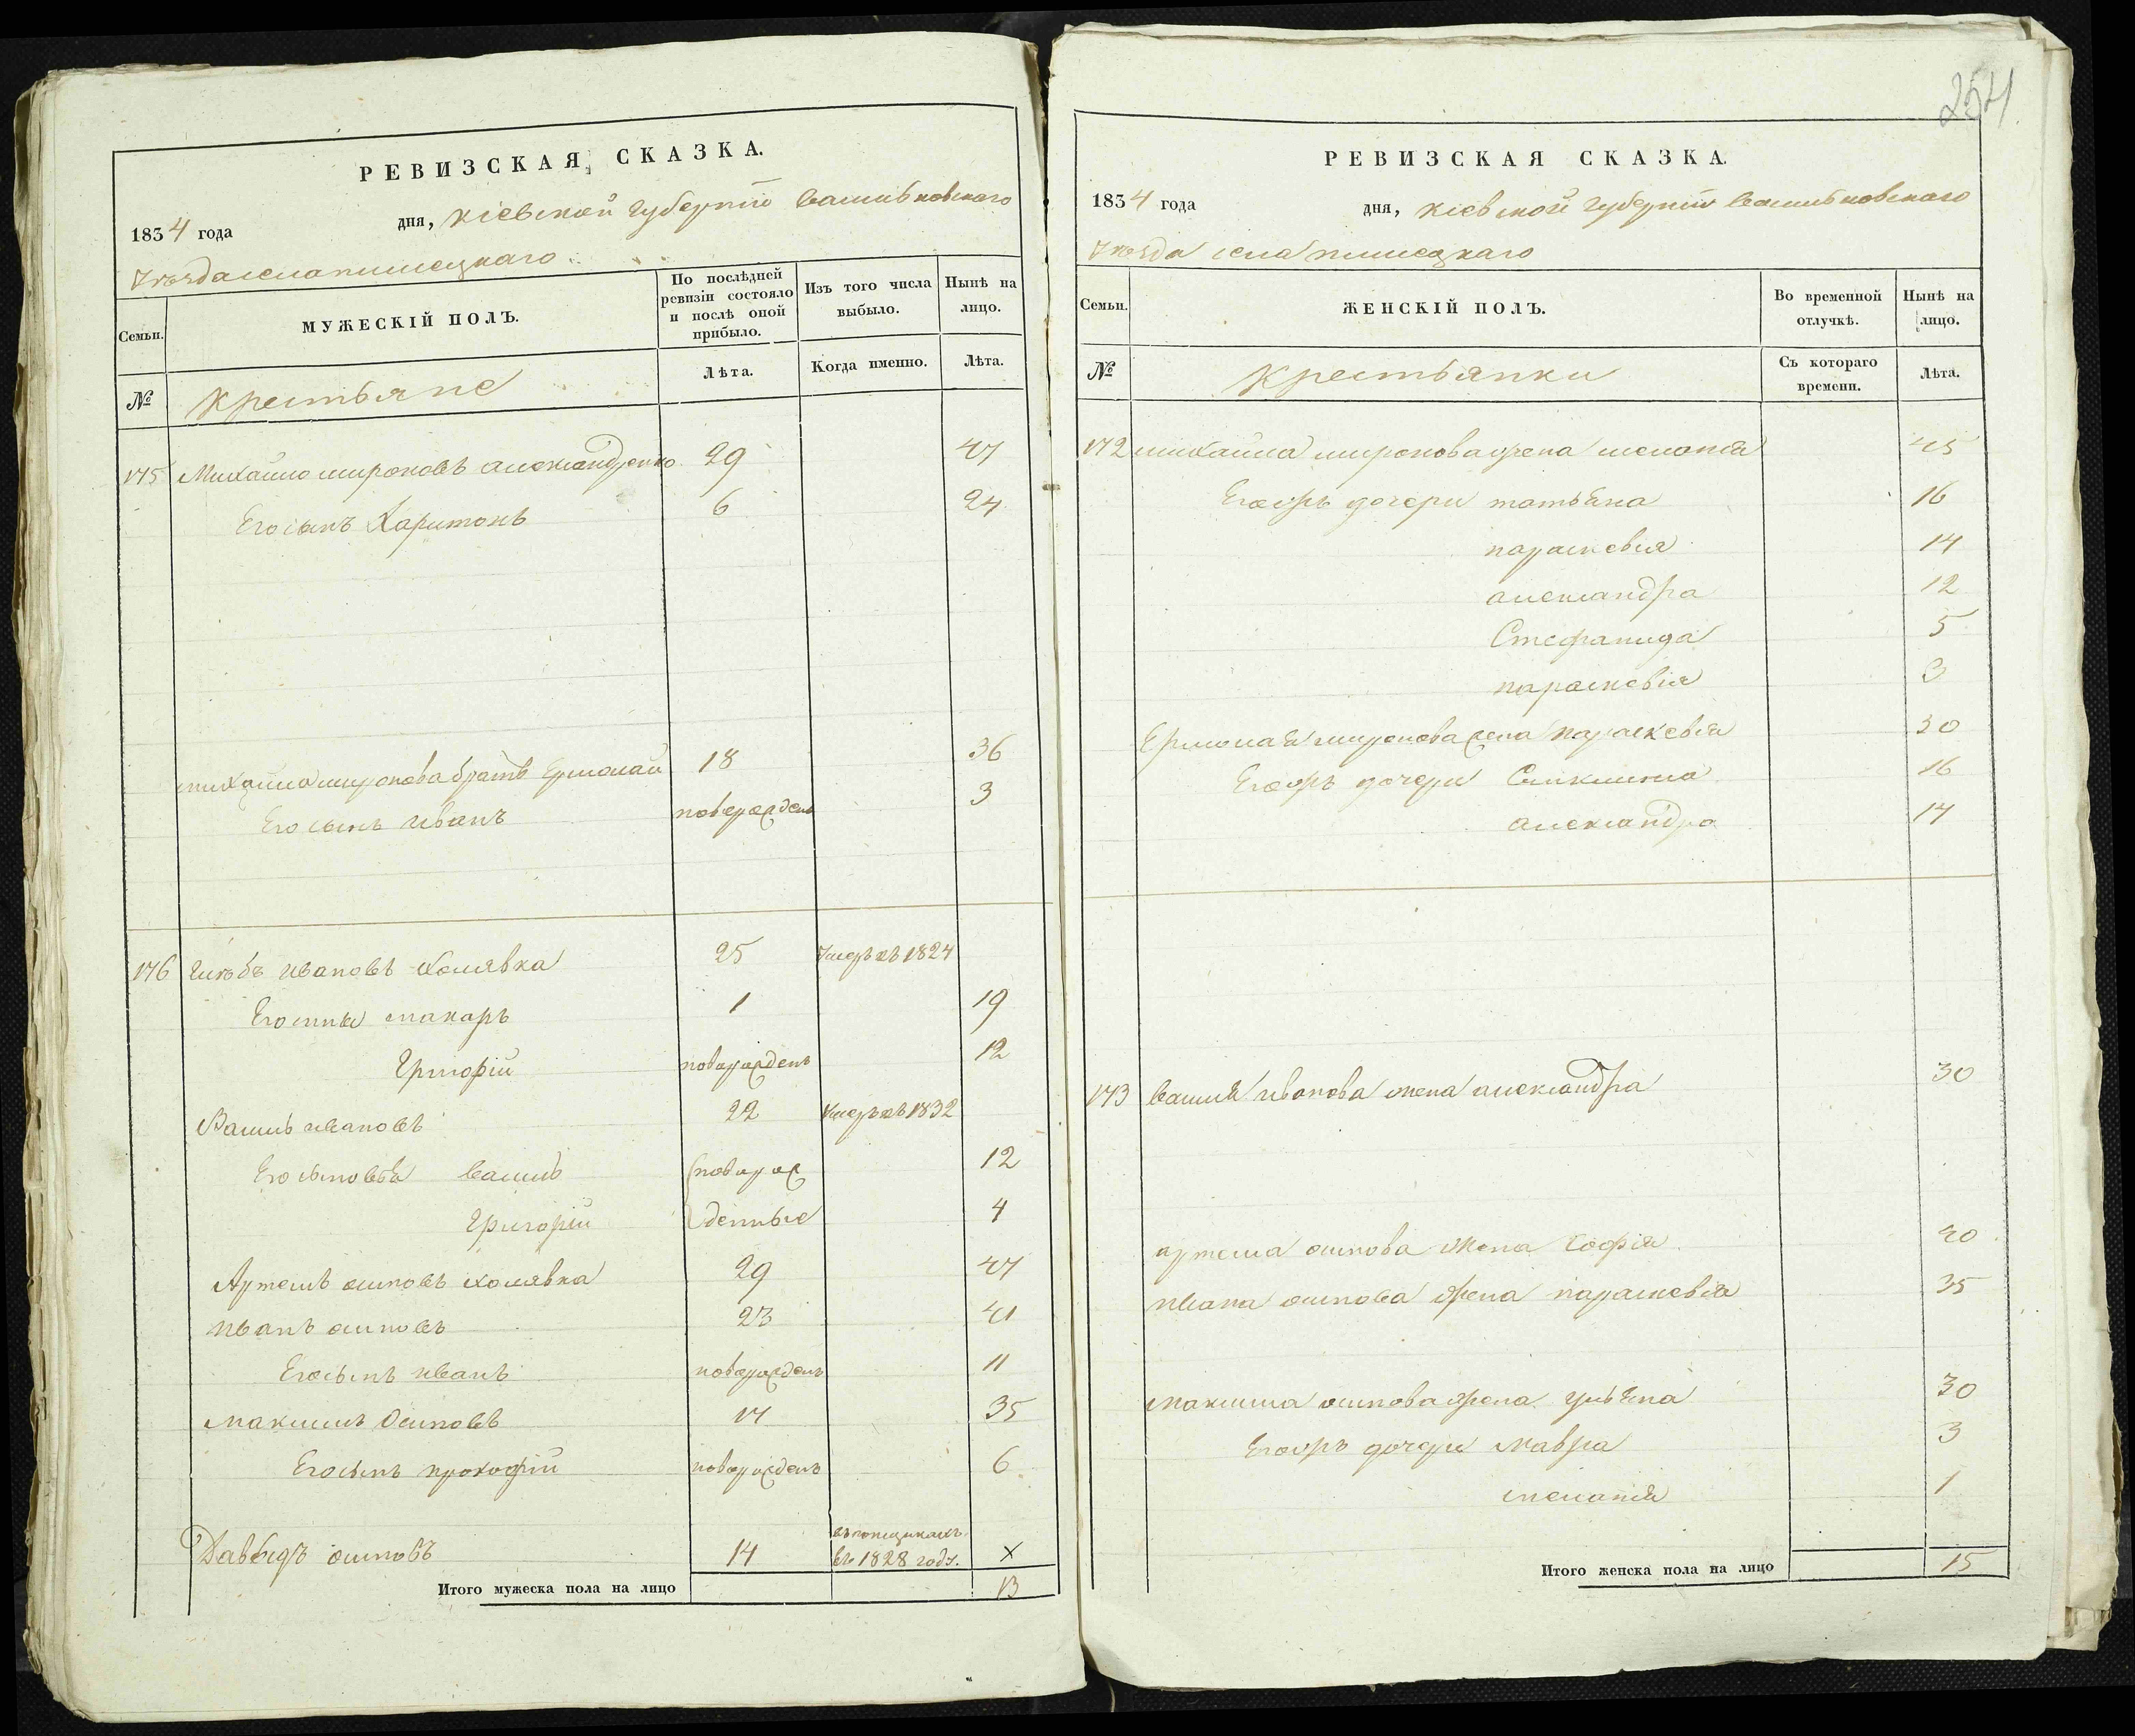 РЕВИЗСКАЯ СКАЗКА.
1834 года дня, Кіевской Губерніи Васильковскаго
Уѣзда села
МУЖЕСКІЙ ПОЛЪ.
По послѣдней ревизіи состояло и послѣ оной прибыло.
Изъ того числа выбыло.
Нынѣ на лицо.
Семьи.
Лѣта.
Когда именно.
Лѣта.
№ Крестьяне
175 Михайло мироновъ александренко 29 47
Его сынъ Харитонъ 6 24
михайла миронова братъ Ермолай 18 36
Его сынъ иванъ новорожденъ 3
176 Глѣбъ ивановъ Холявка 25 Умеръ въ 1824
Его сины макаръ 1 19
Григорій новорожденъ 12
Василь ивановъ 22 Умеръ въ 1832
Его сыновья василь новорож 12
Григорій денные 4
Артемъ осиповъ холявка 29 47
иванъ осиповъ 23 41
Его сынъ иванъ новорожденъ 11
максимъ Осиповъ 17 35
Его сынъ прокофій новорожденъ 6
Давыдъ осиповъ 14 въ 1828 году. х
Итого мужеска пола на лицо 13
254
РЕВИЗСКАЯ СКАЗКА.
1834 года дня, Кіевской Губерніи Васильковскаго
Уѣзда села
Семьи.
ЖЕНСКІЙ ПОЛЪ.
Во временной отлучкѣ.
Нынѣ на лицо.
№ Крестьянки
Съ котораго времени.
Лѣта.
172 михайла миронова жена меланія 45
Егожъ дочери татьяна 16
параскевия 14
александра 12
Стефанида 5
параскевія 3
Ермолая миронова жена параскевія 30
Егожъ дочери 16
александра 14
173 василя иванова жена александра 30
артема осипова жена софія 40
ивана осипова жена параскевія 35
максима осипова жена ульяна 30
Егожъ дочери мавра 3
меланія 1
Итого женска пола на лицо 15